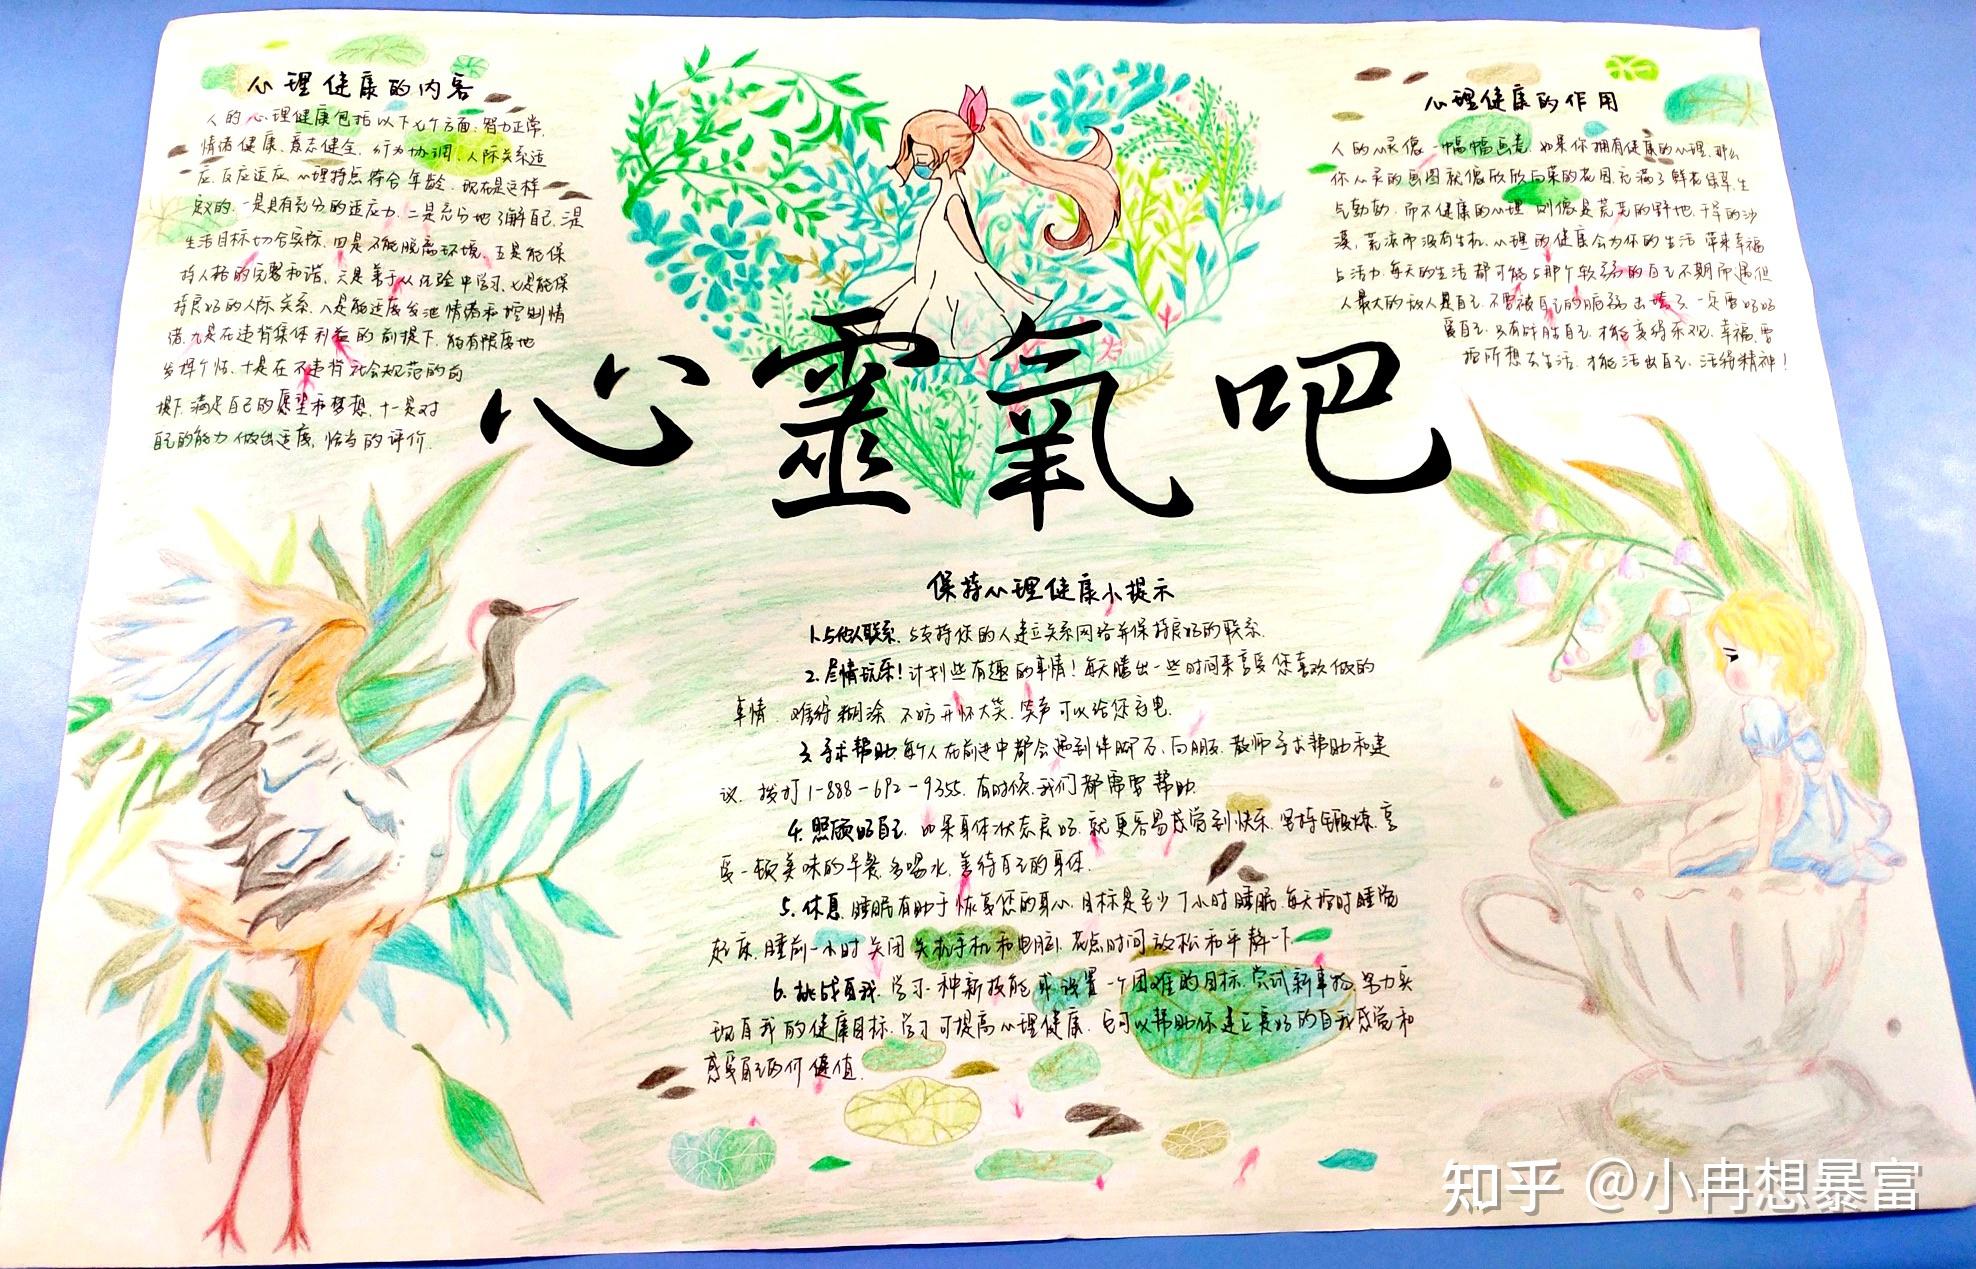 心理健康的内容
人的心理健康包括以下七个方面:智力正常,
情绪健康、意志健全、行为协调、人际关系适
应、反应适应、心理特点符合年龄。现在是这样
定义的,一是具有充分的适应力,二是充分地了解自己,三是
生活目标切合实际,四是不能脱离环境,五是能保
持人格的完整和谐,六是善于从经验中学习,七是能保
持良好的人际关系,八是能适度发泄情绪和控制情
绪,九是在违背集体利益的前提下,能有限度地
发挥个性,十是在不违背社会规范的前
提下,满足自己的愿望和梦想,十一是对
自己的能力做出适度、恰当的评价.
心理健康的作用
人的心灵像一幅幅画卷,如果你拥有健康的心理,那么
你心灵的画图就像欣欣向荣的花园,充满了鲜花绿草,生
气勃勃,而不健康的心理,则像是荒芜的野地,干旱的沙
漠,荒凉而没有生机.心理的健康会为你的生活带来幸福
与活力,每天的生活都可能与那个软弱的自己不期而遇,但
人最大的敌人是自己,不要被自己的脑弱出,一定要好好
爱自己,只有战胜自己,才能变得乐观、幸福,要
按所想去生活,才能活出自己,活得精神!
心靈氧吧
保持心理健康小提示
1.与他人联系,与支持您的人建立关系网络并保持良好的联系.
2.尽情玩乐!计划些有趣的事情!每天腾出一些时间来享受您喜欢做的
事情.难得糊涂,不妨开怀大笑,笑声可以给您充电.
3.寻求帮助,每个人在前进中都会遇到绊脚石,向朋友、教师寻求帮助和建
议,拨打1-888-692-9355.有时候,我们都需要帮助.
4.照顾好自己,如果身体状态良好,就更容易感觉到快乐,坚持锻炼,享
受一顿美味的早餐,多喝水,善待自己的身体.
5.休息,睡眠有助于恢复您的身心,目标是至少7小时睡眠,每天按时睡觉
起床,睡前一小时关闭关机手机和电脑,花点时间放松和平静一下.
6.挑战自我,学习一种新技能或设置一个困难的目标,尝试新事物,努力实
现自我的健康目标,学习可提高心理健康,它可以帮助你建立良好的自我感觉和
感受自己的价值.
知乎 @小冉想暴富